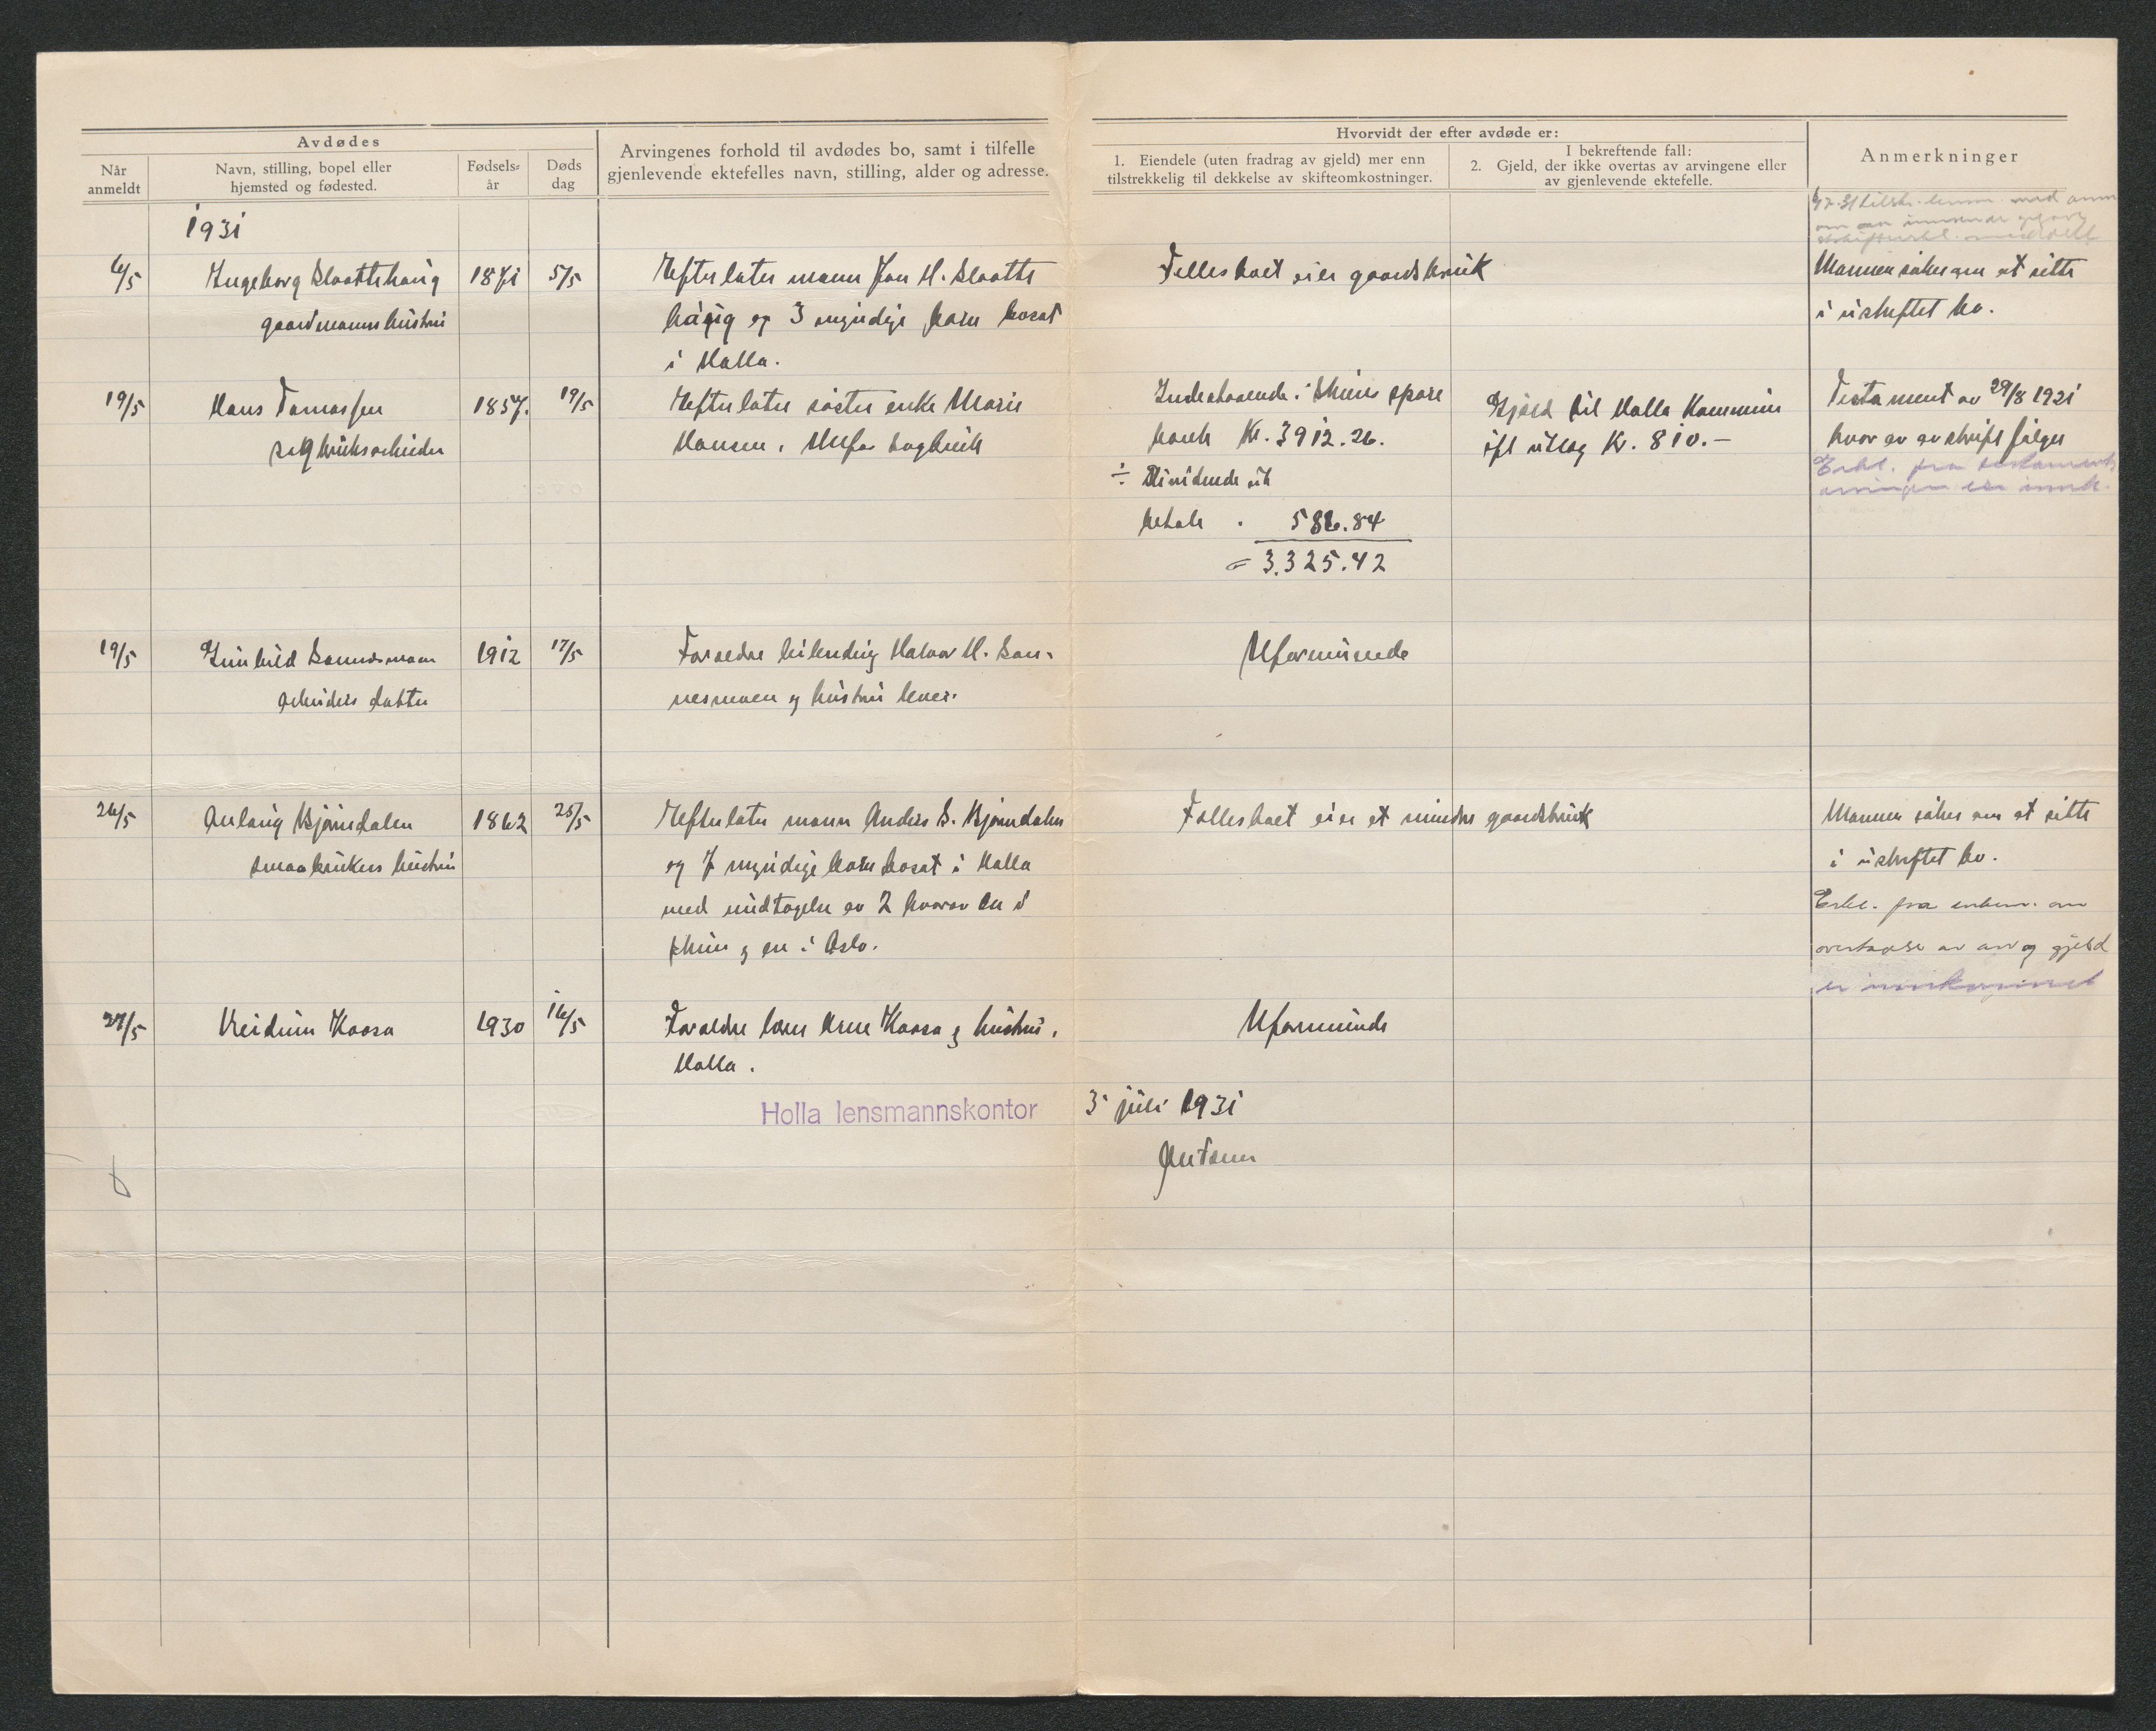 Avdødes
Når anmeldt
Navn, stilling, bopel eller hjemsted og fødested.
Fødselsår
Døds dag
Arvingenes forhold til avdødes bo, samt i tilfelle gjenlevende ektefelles navn, stilling, alder og adresse.
Hvorvidt der efter avdøde er:
1. Eiendele (uten fradrag av gjeld) mer enn tilstrekkelig til dekkelse av skifteomkostninger.
I bekreftende fall:
2. Gjeld, der ikke overtas av arvingene eller av gjenlevende ektefelle.
Anmerkninger
1931
6/5 Ingeborg Slaattehaug 1871 5/5 Efterlater mann Jon H. Slaatte Felleshoet eier gaardsbruk Mannen søker om at sitte
gaardmanns hustru haug og 3 myndige barn bosat i uskiftet bo.
i Holla.
19/5 Hans Tomassen 1857. 19/5 Efterlater søster enke Marie Indestaaende i Skiens spare Gjæld til Holla Kommune Testament av 29/8 1921
Hansen, Ulefos bank Kr. 3912.26. Kr. 810.- hvor av avskrift følger
÷ Dividende ut Erkl. fra
betalt 586.84
= 3.325.42
19/5 Gunhild 1912 17/5 Foreldre Halvor H. San- Uformuende
arbeiders datter nesmoen og hustru lever.
26/5 Aslaug Bjørndalen 1862 25/5 Efterlater mann Anders S. Bjørndalen Felleshoet eier et mindre gaardsbruk Mannen søker om at sitte
smaabrukers hustru og 7 myndige barn bosat i Holla i uskiftet bo.
med undtagelse av 2 hvorav en i Erkl. fra enkem. om
Skien og en i Oslo. overtagelse av arv og gjeld
er innkommet
27/5 Reidun Kaasa 1930 16/5 Foreldre Arne Kaasa og hustru, Uformuende
Holla.
Holla lensmannskontor 3 juli 1931